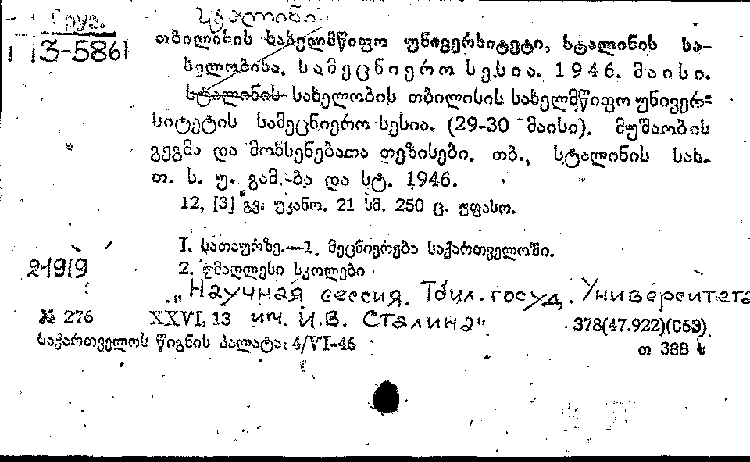 Груз. სტალინი
13-5861 თბილისის სახელმწიფო უნივერსიტეტი, სტალინის სა-
ხელობისა. სამეცნიერო სესია. 1946. მაისი.
სტალინის სახელობის თბილისის სახელმწიფო უნივერ-
სიტეტის სამეცნიერო სესია. (29-30 მაისი). მუშაობის
გეგმა და მოხსენებათა თეზისები. თბ., სტალინის სახ.
თ. ს. უ. გამ-ბა და სტ. 1946.
12, [3] გვ. უკანო. 21 სმ. 250 ც. უფასო.
I. სათაურზე.—1. მეცნიერება საქართველოში.
21919 2. უმაღლესი სკოლები
„Научная сессия. Тбил. госуд. Университета
№ 276 XXVI, 13 им. И.В. Сталина" 378(47.922)(063)
საქართველოს წიგნის პალატა: 4/VI-46 თ 388 ს